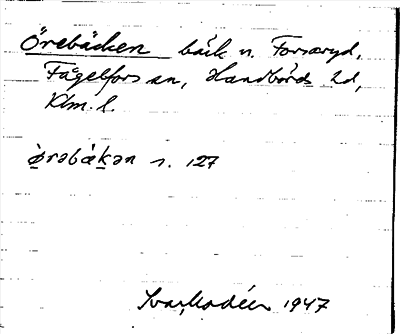 Örebäcken bäck n. Forsaryd,
Fågelfors sn, Handbörds hd,
Klm. l.
ö̀rəbä̀kən s. 127
Ivar Modéer 1947